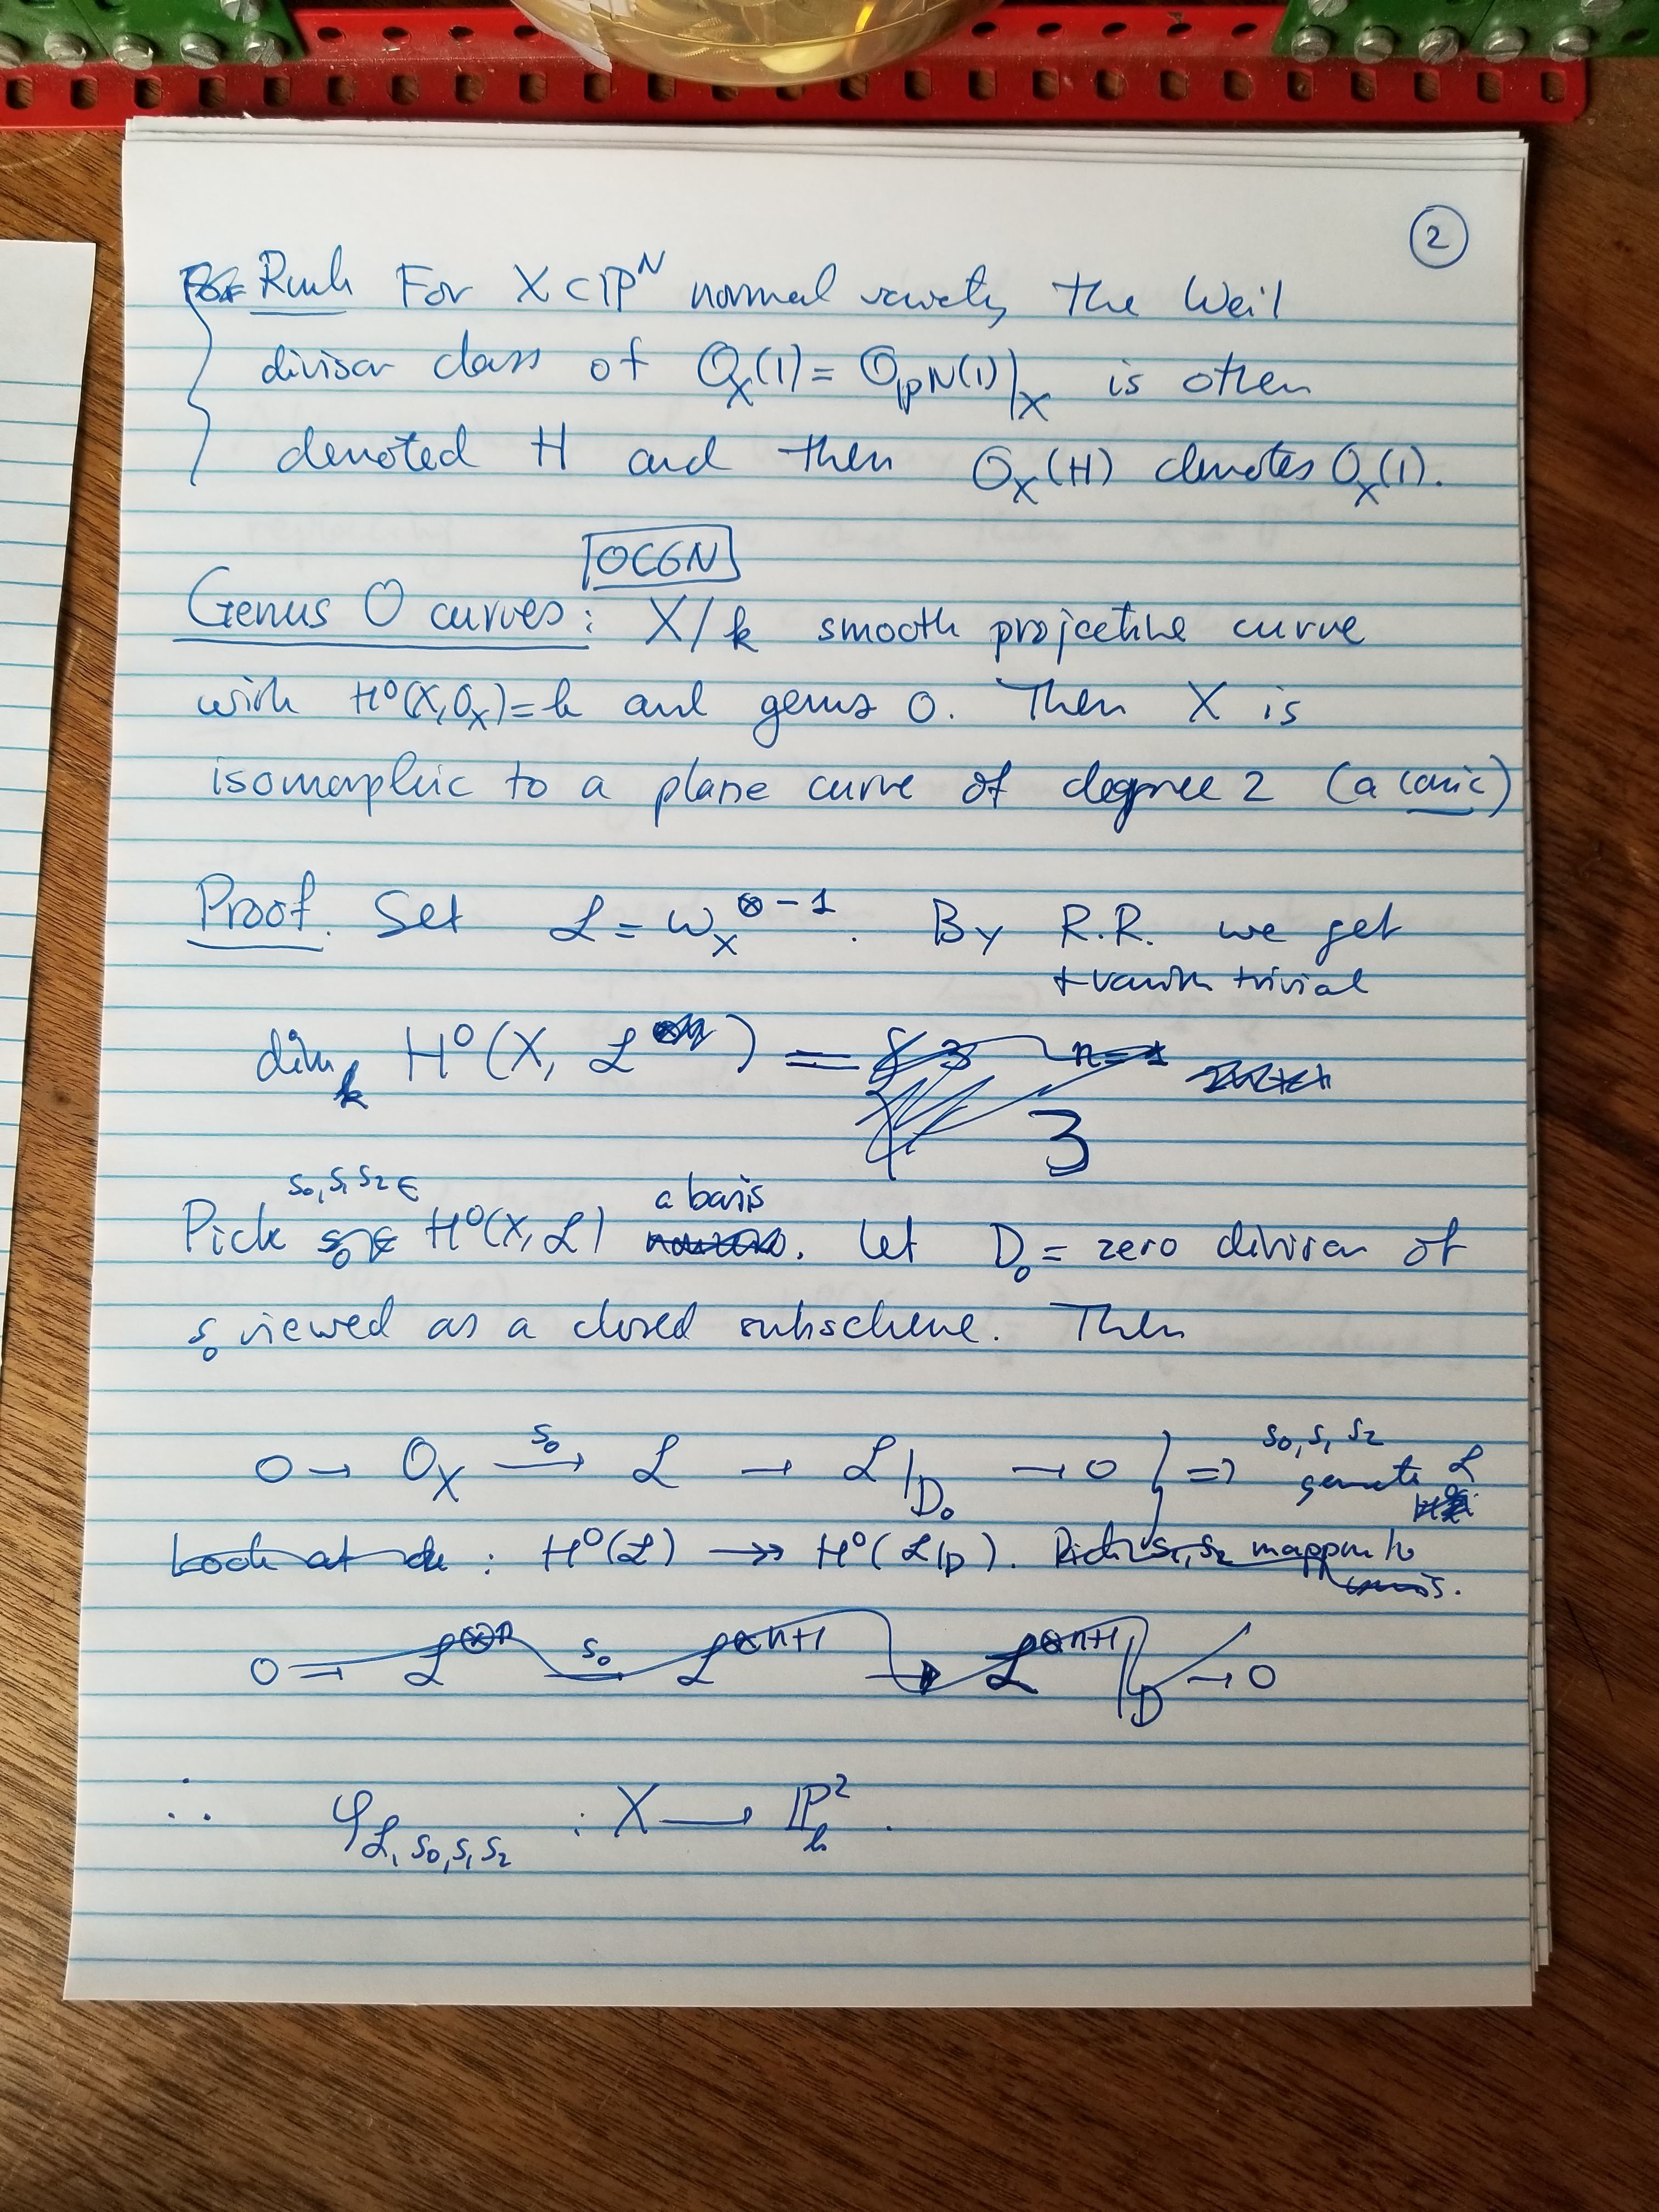 ②
Rmk For X ⊂ ℙ^N normal variety the Weil
divisor class of O_X(1) = O_{ℙ^N}(1)|_X is often
denoted H and then O_X(H) denotes O_X(1).
0C6N
Genus 0 curves: X/k smooth projective curve
with H⁰(X, O_X) = k and genus 0. Then X is
isomorphic to a plane curve of degree 2 (a conic)
Proof. Set ℒ = ω_X^{⊗-1}. By R.R. we get
+ vanish trivial
dim_k H⁰(X, ℒ) = 3
s₀, s₁ s₂ ∈ a basis
Pick H⁰(X, ℒ). Let D₀ = zero divisor of
s₀ viewed as a closed subscheme. Then
0 → O_X →^{s₀} ℒ → ℒ|_{D₀} → 0 } ⇒ s₀, s₁ s₂ generate ℒ
Look at : H⁰(ℒ) ↠ H⁰(ℒ|_D). Pick s₁, s₂ mapping to
0 → ℒ^{⊗n} →^{s₀} ℒ^{⊗n+1} → ℒ^{⊗n+1}|_D → 0
∴ φ_{ℒ, s₀, s₁ s₂} : X → ℙ²_k.